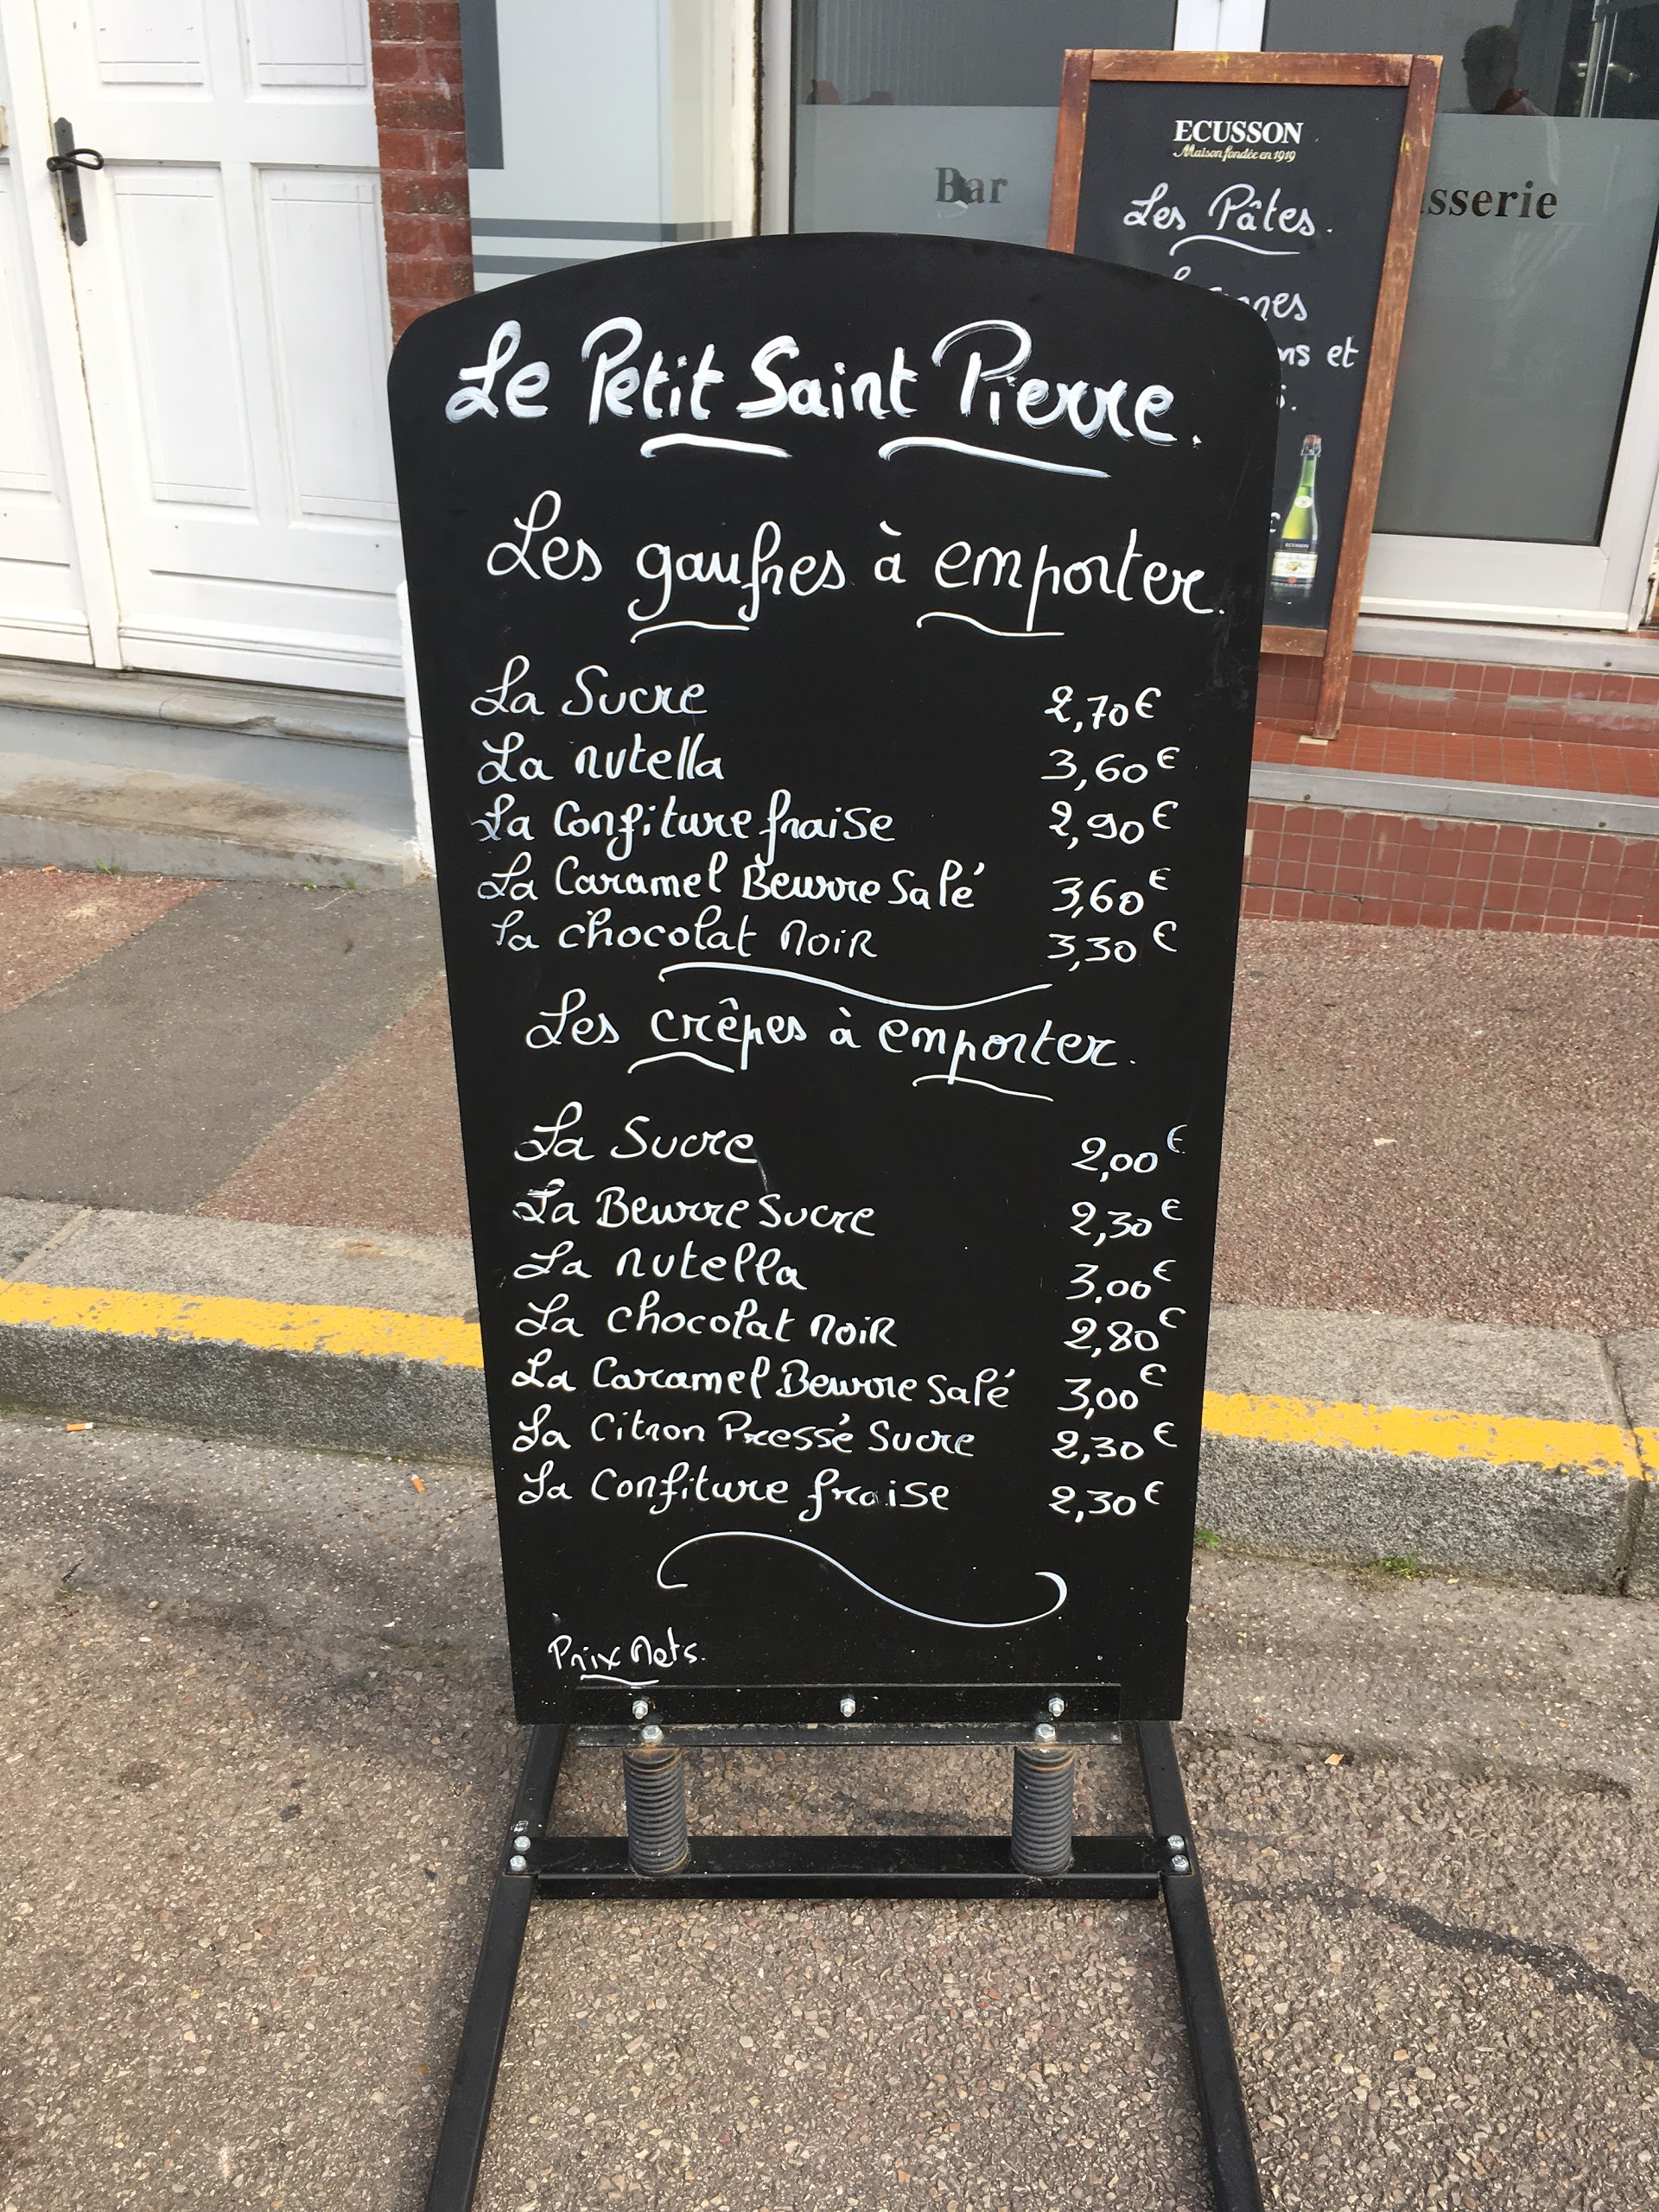 ECUSSON
Maison fondée en 1919
Bar
sserie
Les Pâtes.
ns et
Le Petit Saint Pierre.
Les gaufres à emporter.
La Sucre 2,70€
La nutella 3,60€
La Confiture fraise 2,90€
La Caramel Beurre Salé 3,60€
La chocolat noir 3,30€
Les crêpes à emporter.
La Sucre 2,00€
La Beurre Sucre 2,30€
La nutella 3.00€
La chocolat noir 2,80€
La Caramel Beurre Salé 3,00€
La Citron Pressé Sucre 2,30€
La Confiture fraise 2,30€
Prix Nets.